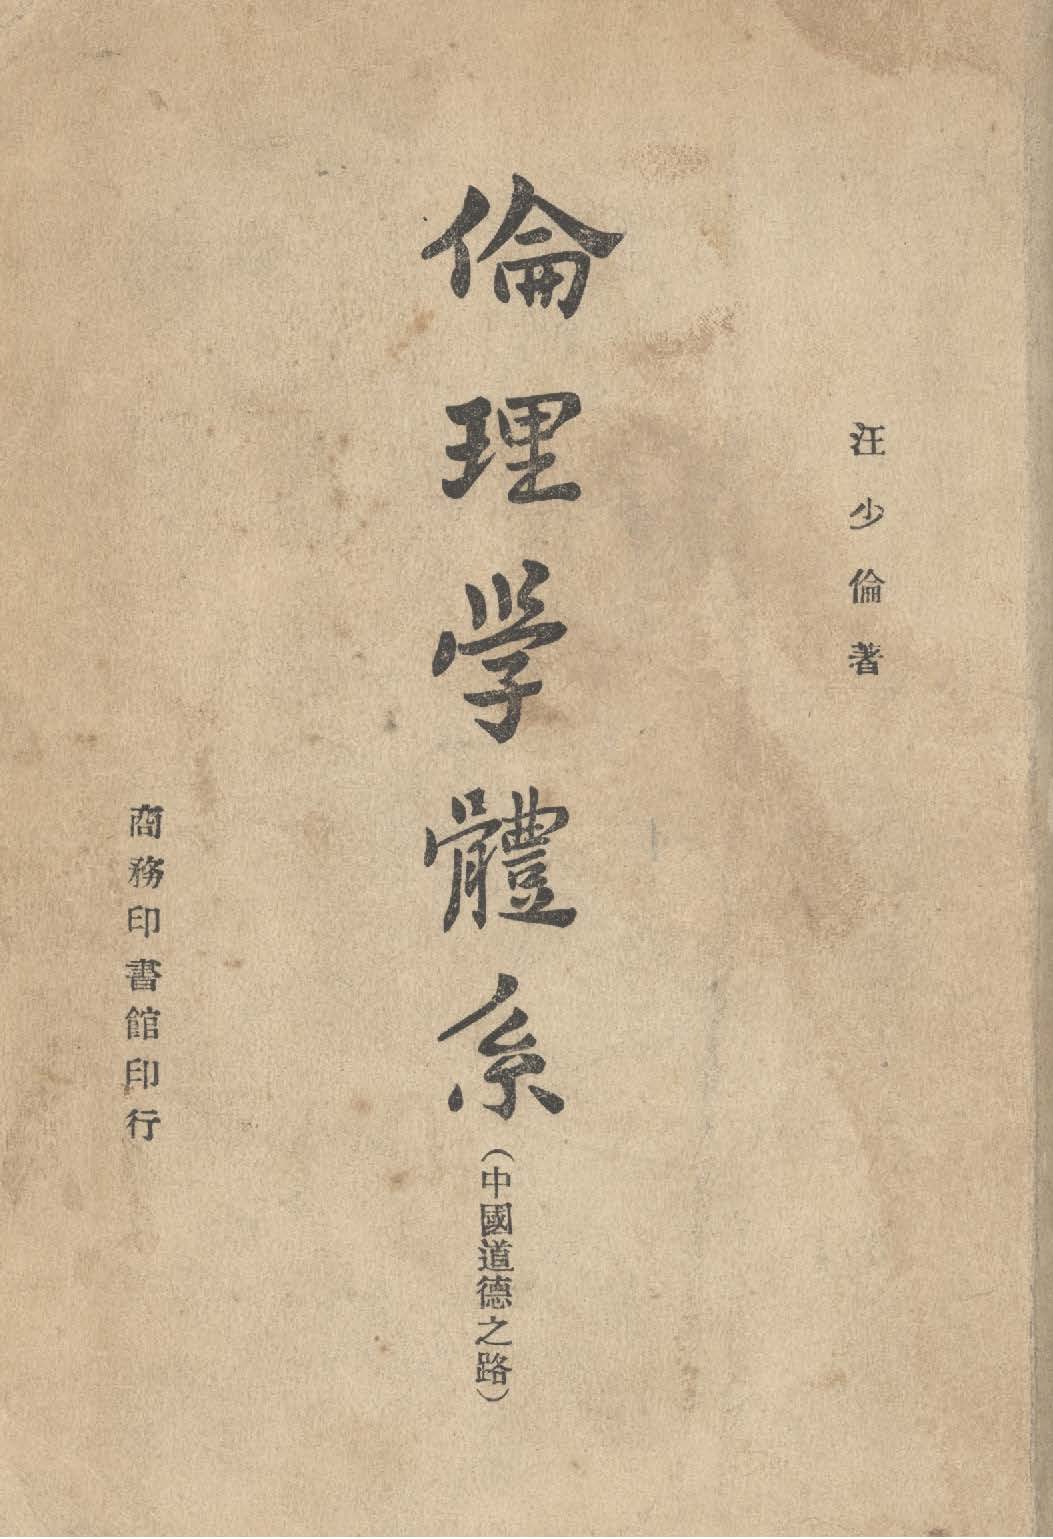 汪少倫著
倫理学體系
（中國道德之路）
商務印書館印行